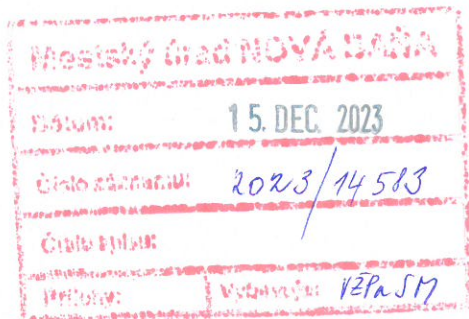 Mestský úrad NOVÁ BAŇA
Dátum: 15. DEC. 2023
Číslo záznamu: 2023/14583
Číslo spisu:
Prílohy: Vybavuje: VŽPaSM